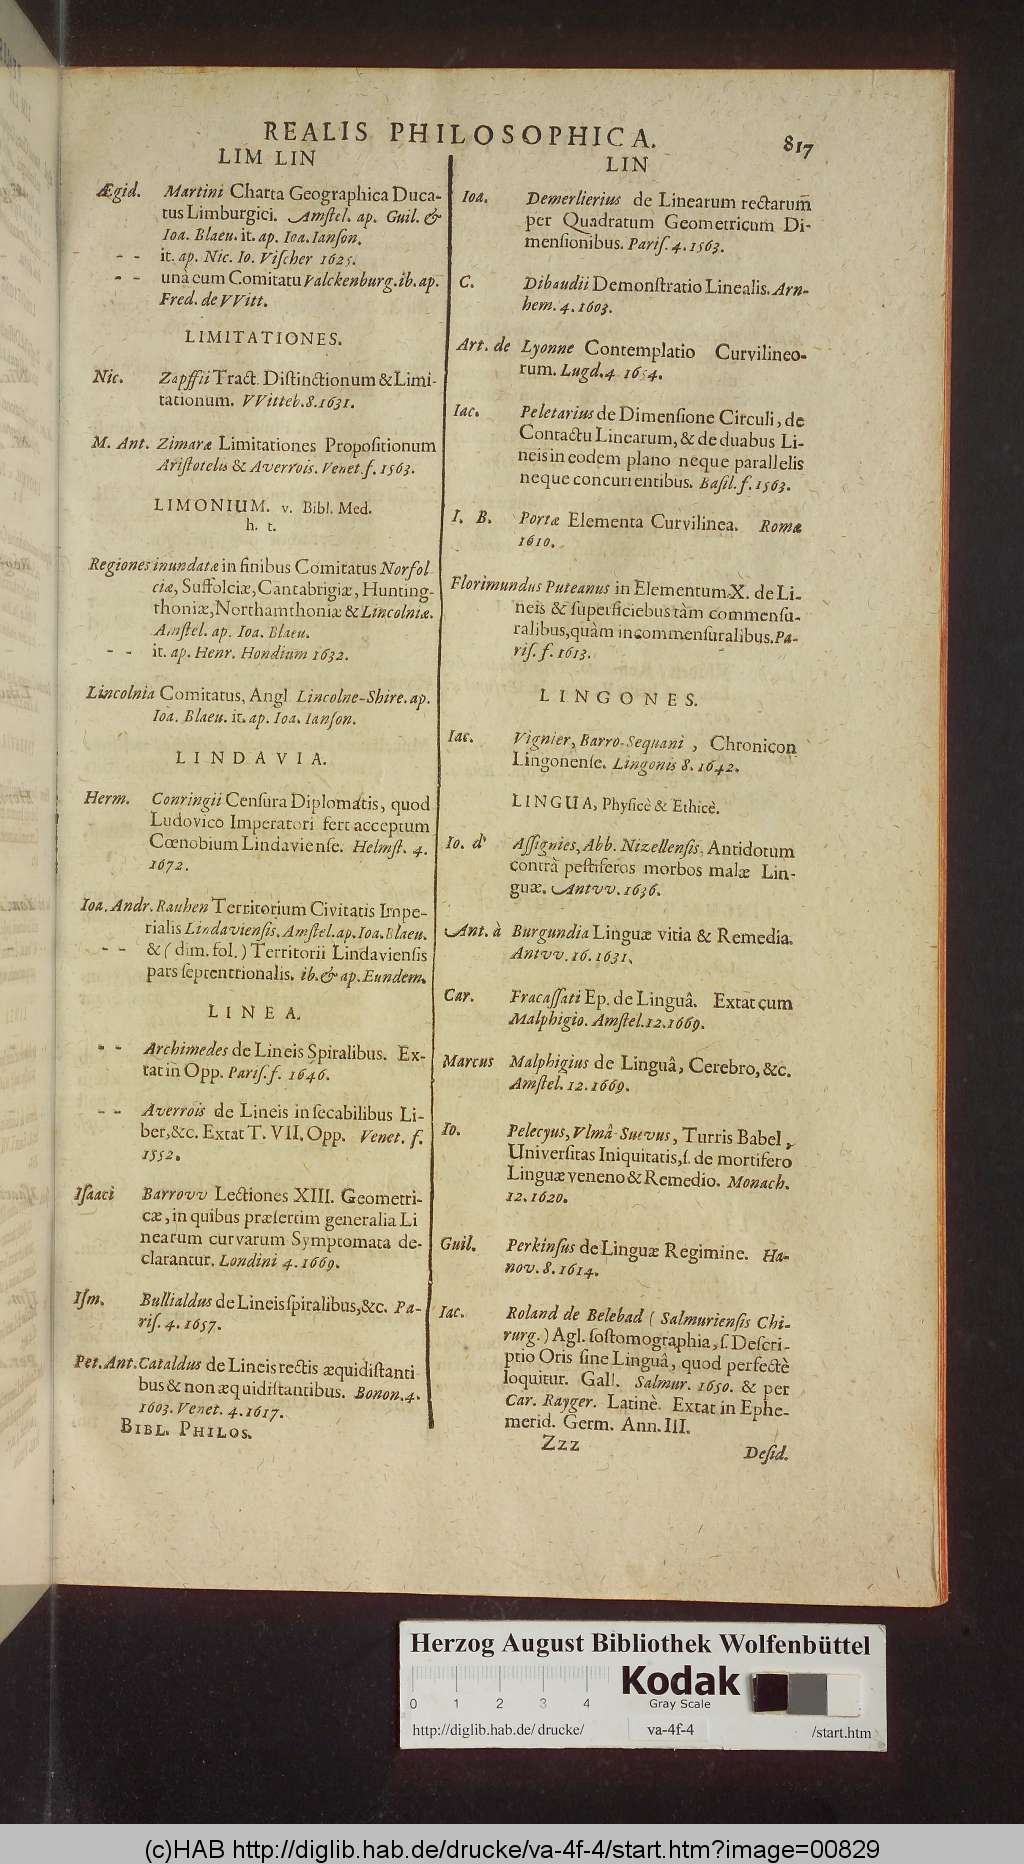 REALIS PHILOSOPHICA.
817
LIM LIN
Ægid. Martini Charta Geographica Duca-
tus Limburgici. Amſtel. ap. Guil. &
Ioa. Blaeu. it. ap. Ioa. Ianſon.
- - it. ap. Nic. Io. Viſcher 1625.
- - unà cum Comitatu Valckenburg. ib. ap.
Fred. de VVitt.
LIMITATIONES.
Nic. Zapffii Tract. Diſtinctionum & Limi-
tationum. VVitteb. 8. 1631.
M. Ant. Zimaræ Limitationes Propoſitionum
Ariſtotelis & Averrois. Venet. f. 1563.
LIMONIUM. v. Bibl. Med.
h. t.
Regiones inundatæ in finibus Comitatus Norfol
ciæ, Suffolciæ, Cantabrigiæ, Hunting-
thoniæ, Northamthoniæ & Lincolniæ.
Amſtel. ap. Ioa. Blaeu.
- - it. ap. Henr. Hondium 1632.
Lincolnia Comitatus, Angl Lincolne-Shire. ap.
Ioa. Blaeu. it. ap. Ioa. Ianſon.
LINDAVIA.
Herm. Conringii Cenſura Diplomatis, quod
Ludovico Imperatori fert acceptum
Cœnobium Lindavienſe. Helmſt. 4.
1672.
Ioa. Andr. Rauhen Territorium Civitatis Impe-
rialis Lindavienſis. Amſtel. ap. Ioa. Blaeu.
- - & ( dim. fol. ) Territorii Lindavienſis
pars ſeptentrionalis. ib. & ap. Eundem.
LINEA.
- - Archimedes de Lineis Spiralibus. Ex-
tat in Opp. Pariſ. f. 1646.
- - Averrois de Lineis inſecabilibus Li-
ber, &c. Extat T. VII. Opp. Venet. f.
1552.
Iſaaci Barrovv Lectiones XIII. Geometri-
cæ, in quibus præſertim generalia Li
nearum curvarum Symptomata de-
clarantur. Londini 4. 1669.
Iſm. Bullialdus de Lineis ſpiralibus, &c. Pa-
riſ. 4. 1657.
Pet. Ant. Cataldus de Lineis rectis æquidiſtanti
bus & non æquidiſtantibus. Bonon. 4.
1603. Venet. 4. 1617.
BIBL. PHILOS.
LIN
Ioa. Demerlierius de Linearum rectarum̃
per Quadratum Geometricum Di-
menſionibus. Pariſ. 4. 1563.
C. Dibaudii Demonſtratio Linealis. Arn-
hem. 4. 1603.
Art. de Lyonne Contemplatio Curvilineo-
rum. Lugd. 4 1654.
Iac. Peletarius de Dimenſione Circuli, de
Contactu Linearum, & de duabus Li-
neis in eodem plano neque parallelis
neque concurrentibus. Baſil. f. 1563.
I. B. Portæ Elementa Curvilinea. Romæ
1610.
Florimundus Puteanus in Elementum X. de Li-
neis & ſuperficiebus tàm commenſu-
ralibus, quàm incommenſuralibus. Pa-
riſ. f. 1613.
LINGONES.
Iac. Vignier, Barro-Sequani, Chronicon
Lingonenſe. Lingonis 8. 1642.
LINGUA, Phyſicè & Ethicè.
Io. d' Aſſignies, Abb. Nizellenſis, Antidotum
contrà peſtiferos morbos malæ Lin-
guæ. Antvv. 1636.
Ant. à Burgundia Linguæ vitia & Remedia.
Antvv. 16. 1631.
Car. Fracaſſati Ep. de Linguâ. Extat cum
Malphigio. Amſtel. 12. 1669.
Marcus Malphigius de Linguâ, Cerebro, &c.
Amſtel. 12. 1669.
Io. Pelecyus, Vlmâ-Suevus, Turris Babel,
Univerſitas Iniquitatis, ſ. de mortifero
Linguæ veneno & Remedio. Monach.
12. 1620.
Guil. Perkinſus de Linguæ Regimine. Ha-
nov. 8. 1614.
Iac. Roland de Belebad ( Salmurienſis Chi-
rurg. ) Agl. ſoſtomographia, ſ. Deſcri-
ptio Oris ſine Linguâ, quod perfectè
loquitur. Gall. Salmur. 1650. & per
Car. Rayger. Latinè. Extat in Ephe-
merid. Germ. Ann. III.
Zzz
Deſid.
Herzog August Bibliothek Wolfenbüttel
Kodak
Gray Scale
0 1 2 3 4
http://diglib.hab.de/drucke/ va-4f-4 /start.htm
(c)HAB http://diglib.hab.de/drucke/va-4f-4/start.htm?image=00829